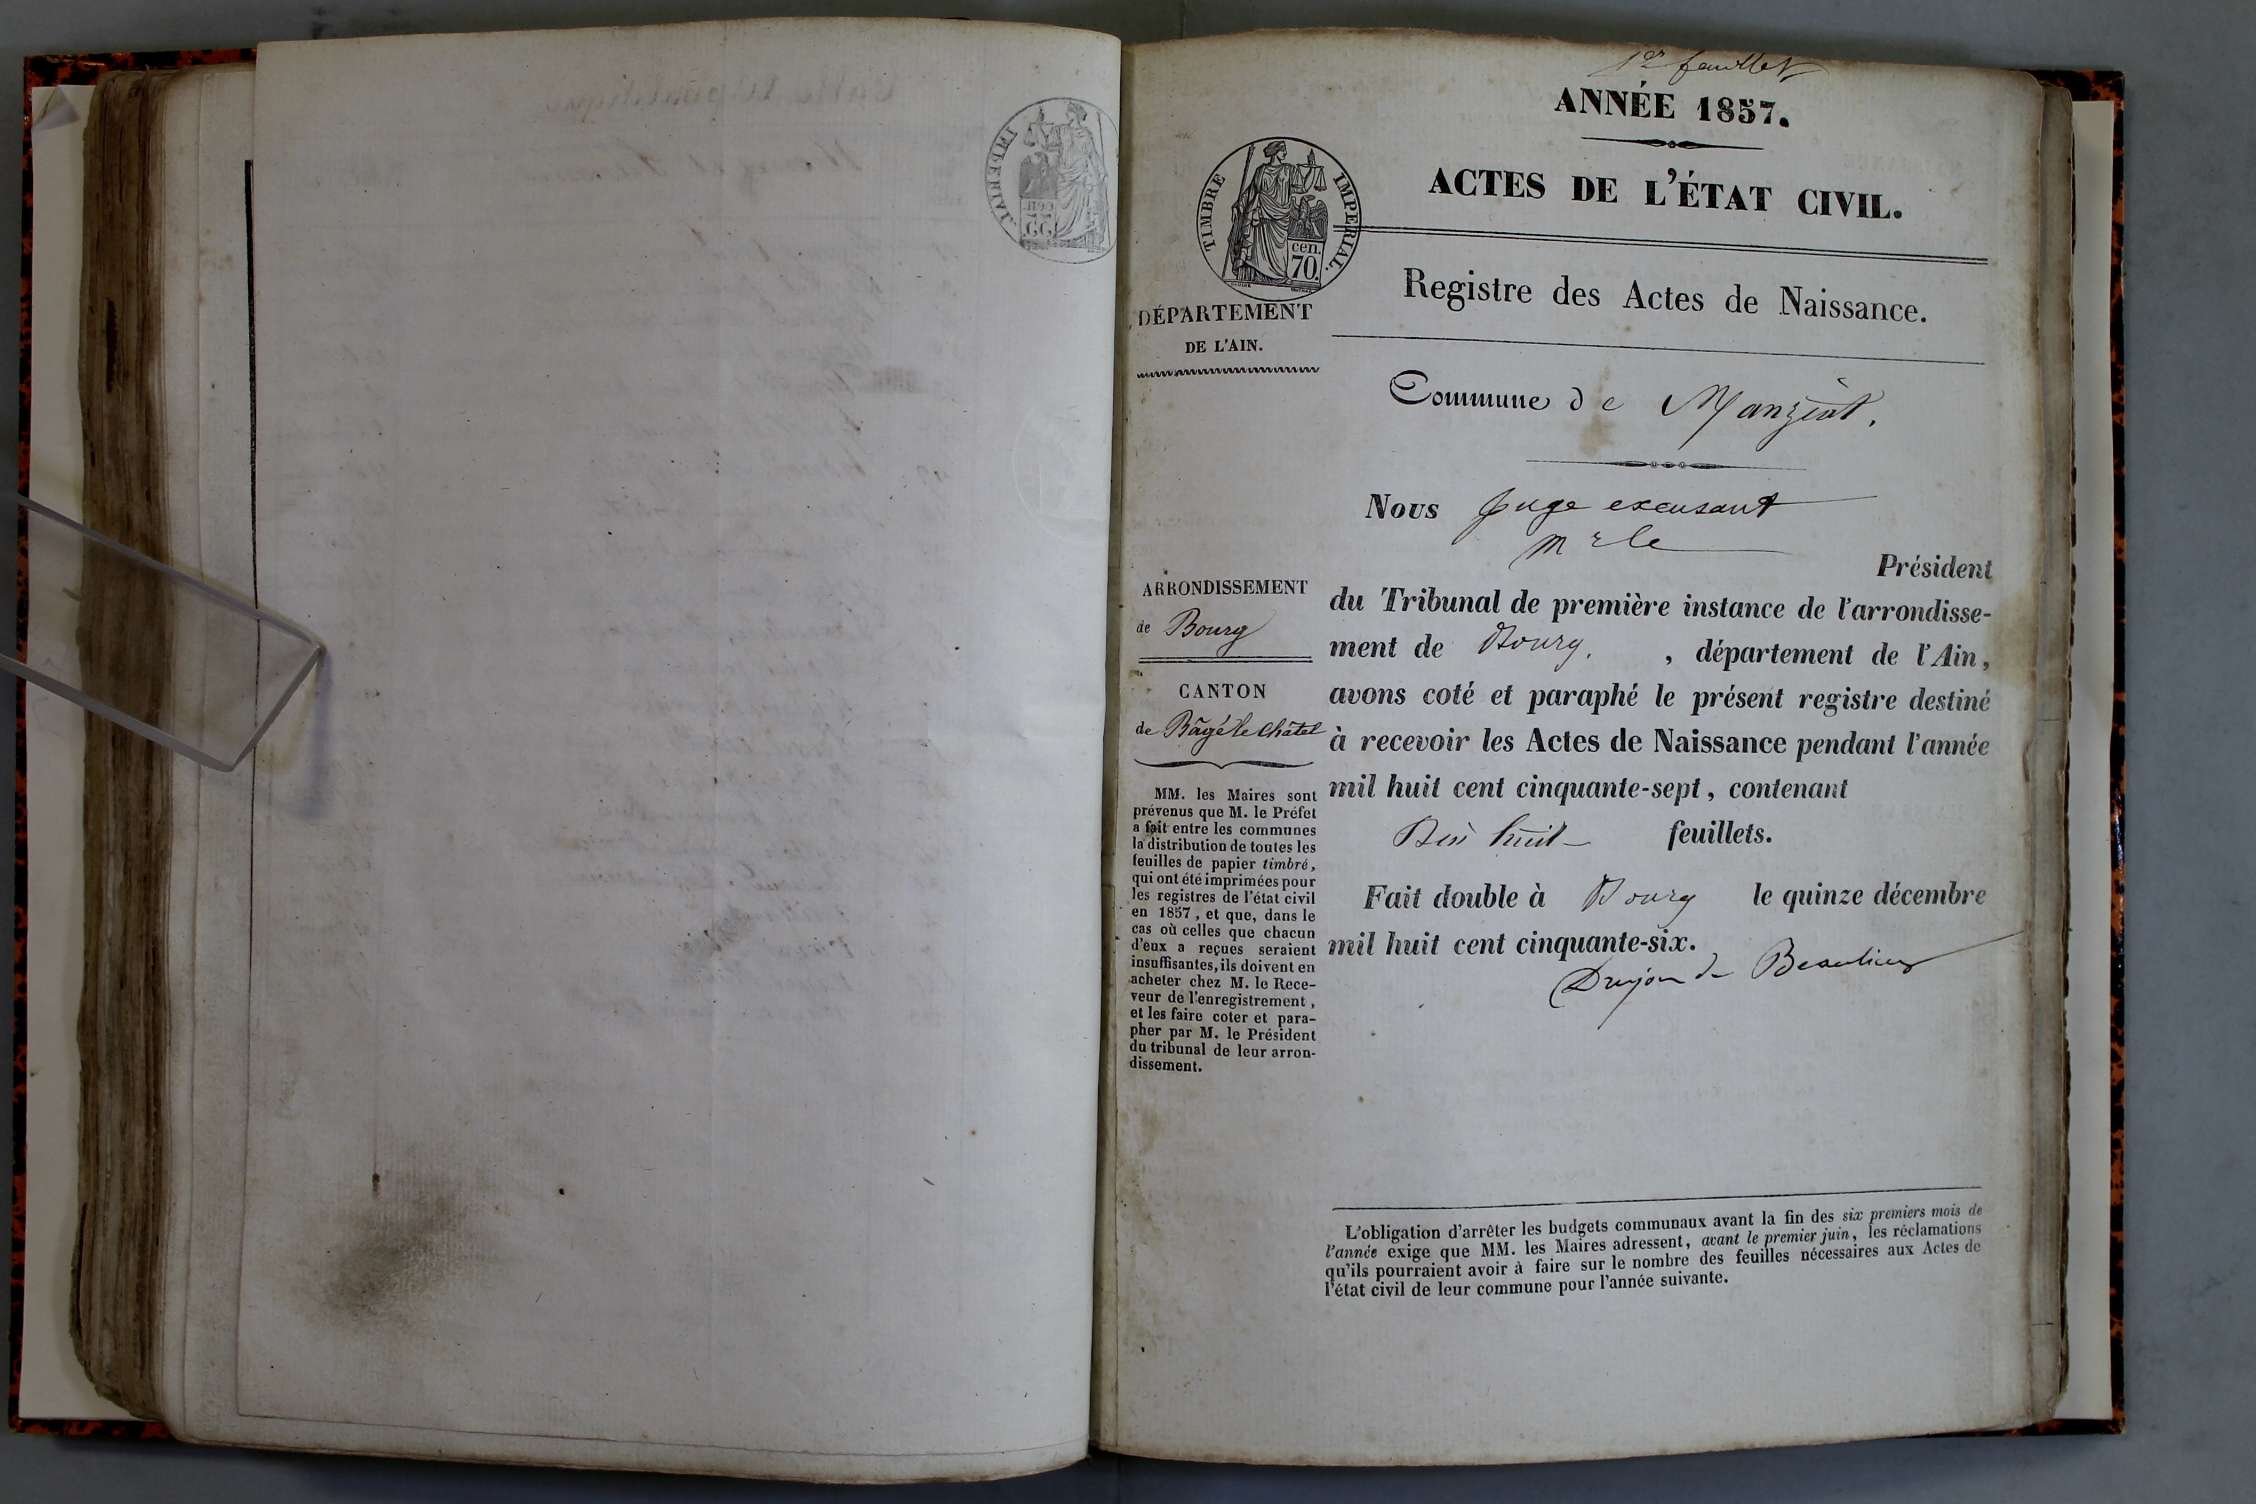 1er feuillet
ANNÉE 1857.
ACTES DE L'ÉTAT CIVIL.
TIMBRE IMPERIAL.
cen.
70.
Registre des Actes de Naissance.
DÉPARTEMENT
DE L'AIN.
Commune de Manziat.
Nous Juge excusant
Mr le
Président
du Tribunal de première instance de l'arrondisse-
ment de Bourg. , département de l'Ain,
avons coté et paraphé le présent registre destiné
à recevoir les Actes de Naissance pendant l'année
mil huit cent cinquante-sept, contenant
huit feuillets.
Fait double à Bourg le quinze décembre
mil huit cent cinquante-six.
Drujon de Beaulieu
ARRONDISSEMENT
de Bourg
CANTON
de Bâgé-le-Châtel
MM. les Maires sont
prévenus que M. le Préfet
a fait entre les communes
la distribution de toutes les
feuilles de papier timbré,
qui ont été imprimées pour
les registres de l'état civil
en 1857, et que, dans le
cas où celles que chacun
d'eux a reçues seraient
insuffisantes, ils doivent en
acheter chez M. le Rece-
veur de l'enregistrement,
et les faire coter et para-
pher par M. le Président
du tribunal de leur arron-
dissement.
L'obligation d'arrêter les budgets communaux avant la fin des six premiers mois de
l'année exige que MM. les Maires adressent, avant le premier juin, les réclamations
qu'ils pourraient avoir à faire sur le nombre des feuilles nécessaires aux Actes de
l'état civil de leur commune pour l'année suivante.